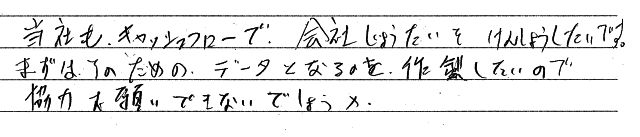 当社も、キャッシュフローで、会社じょうたいを けんしょうしたいです。
まずは、そのための、データとなるのを、作製したいので
協力お願いできないでしょうか。